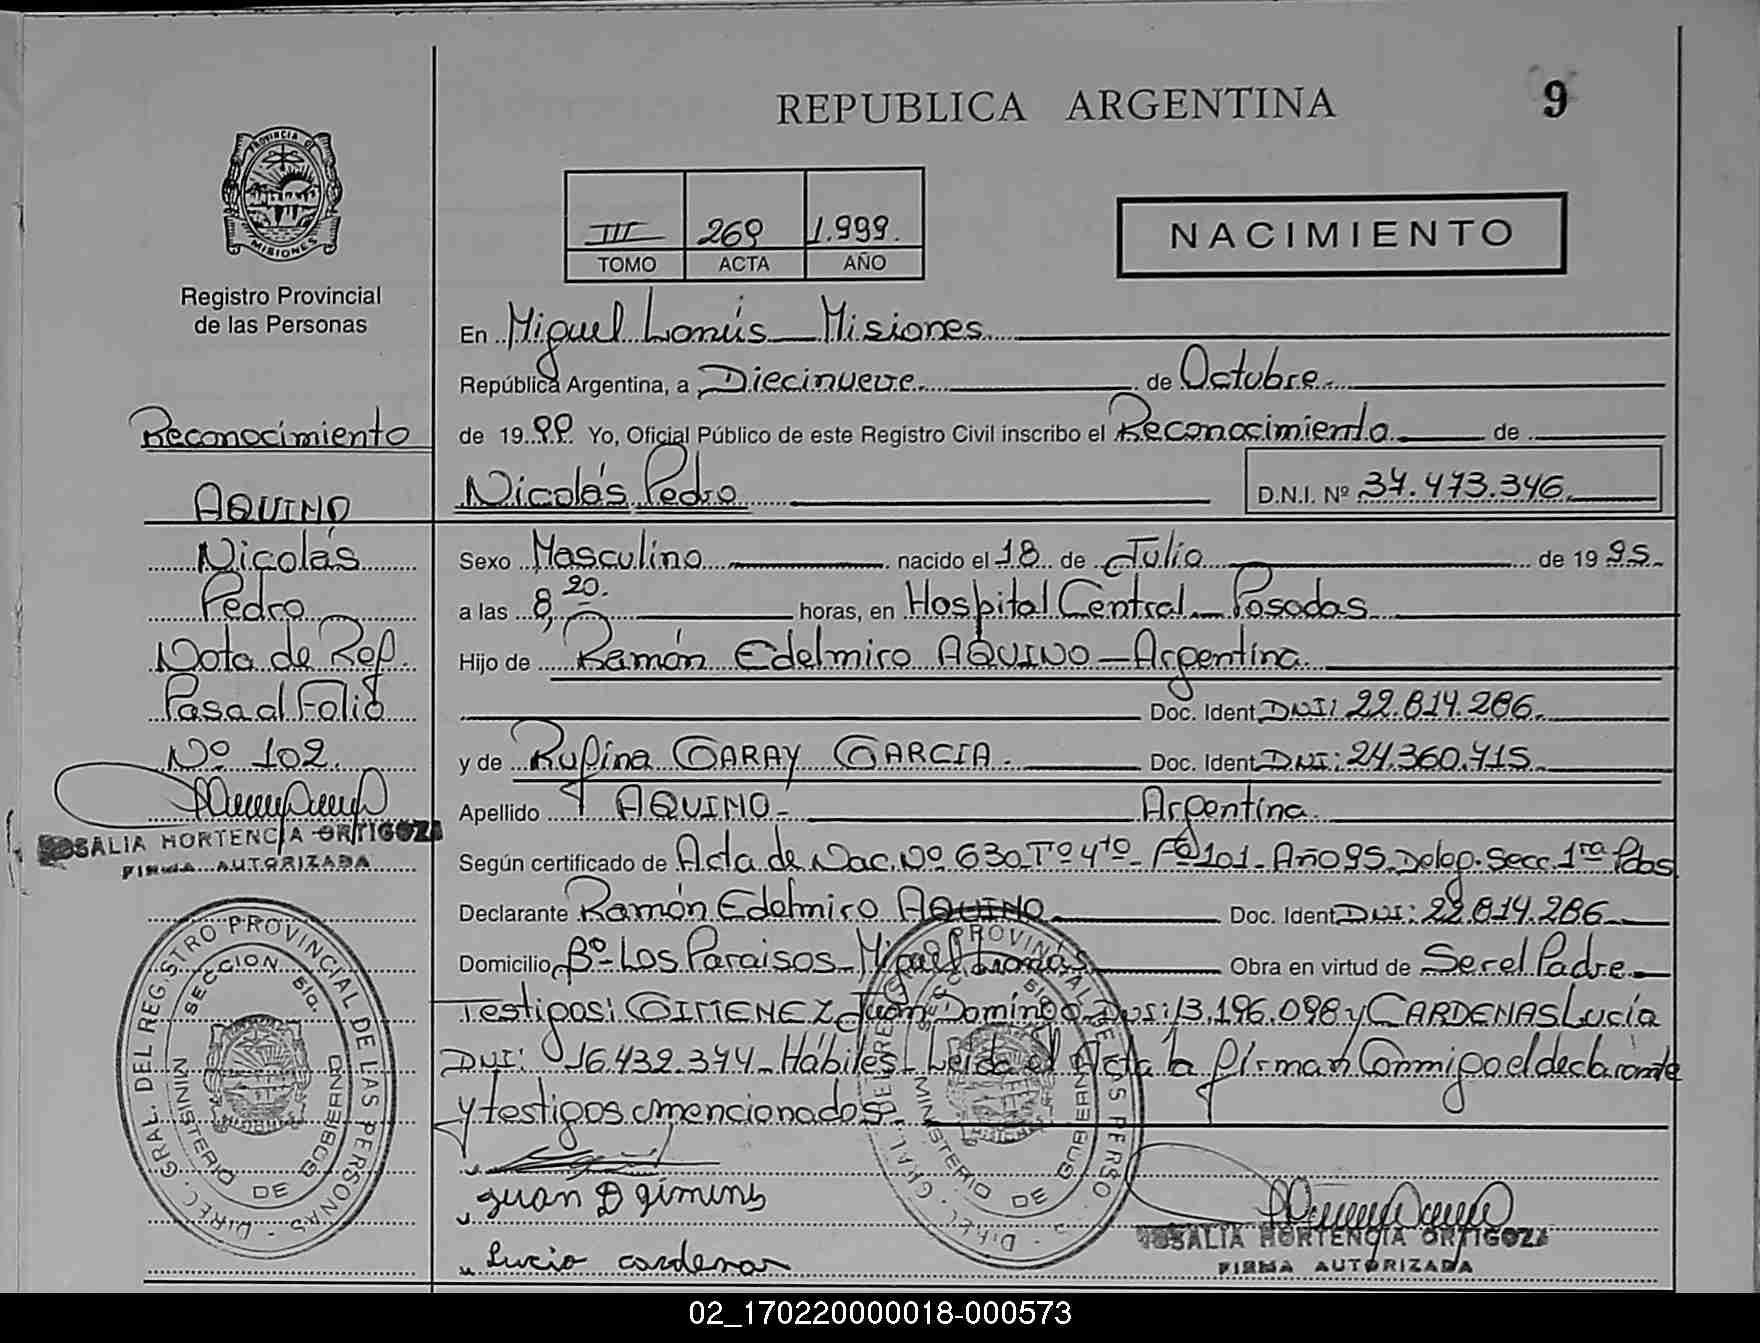 REPUBLICA ARGENTINA
9
PROVINCIA DE
MISIONES
Registro Provincial
de las Personas
III 269 1.999.
TOMO ACTA AÑO
NACIMIENTO
En Miguel Lanús - Misiones
República Argentina, a Diecinueve de Octubre
de 1999 Yo, Oficial Público de este Registro Civil inscribo el Reconocimiento de
Nicolás Pedro D.N.I. Nº 37.473.346
Sexo Masculino nacido el 18 de Julio de 1995
a las 8,20. horas, en Hospital Central - Posadas
Hijo de Ramón Edelmiro AQUINO - Argentina
Doc. Ident. DNI: 22.814.286
y de Rufina GARAY GARCIA. Doc. Ident. DNI: 24.360.715
Apellido AQUINO - Argentina
Según certificado de Acta de Nac. Nº 630 Tº 4to - Fº 101 - Año 95 Deleg. Secc. 1ra Pdas
Declarante Ramón Edelmiro AQUINO Doc. Ident. DNI: 22.814.286
Domicilio Bº Los Paraisos - Miguel Lanús Obra en virtud de Ser el Padre
Testigos: GIMENEZ Juan Domingo DNI: 13.196.098 y CARDENAS Lucía
DNI: 16.432.374 - Hábiles - Leida el Acta la firman Conmigo el declarante
y testigos mencionados
Juan D Gimens
Lucia cardenas
ROSALIA HORTENCIA ORTIGOZA
FIRMA AUTORIZADA
Reconocimiento
AQUINO
Nicolás
Pedro
Nota de Ref.
Pasa al Folio
Nº 102.
ROSALIA HORTENCIA ORTIGOZA
FIRMA AUTORIZADA
DIREC. GRAL. DEL REGISTRO PROVINCIAL DE LAS PERSONAS
SECCION 5ta.
MINISTERIO DE GOBIERNO
DIREC. GRAL. DEL REGISTRO PROVINCIAL DE LAS PERSONAS
SECCION 5ta.
MINISTERIO DE GOBIERNO
02_170220000018-000573